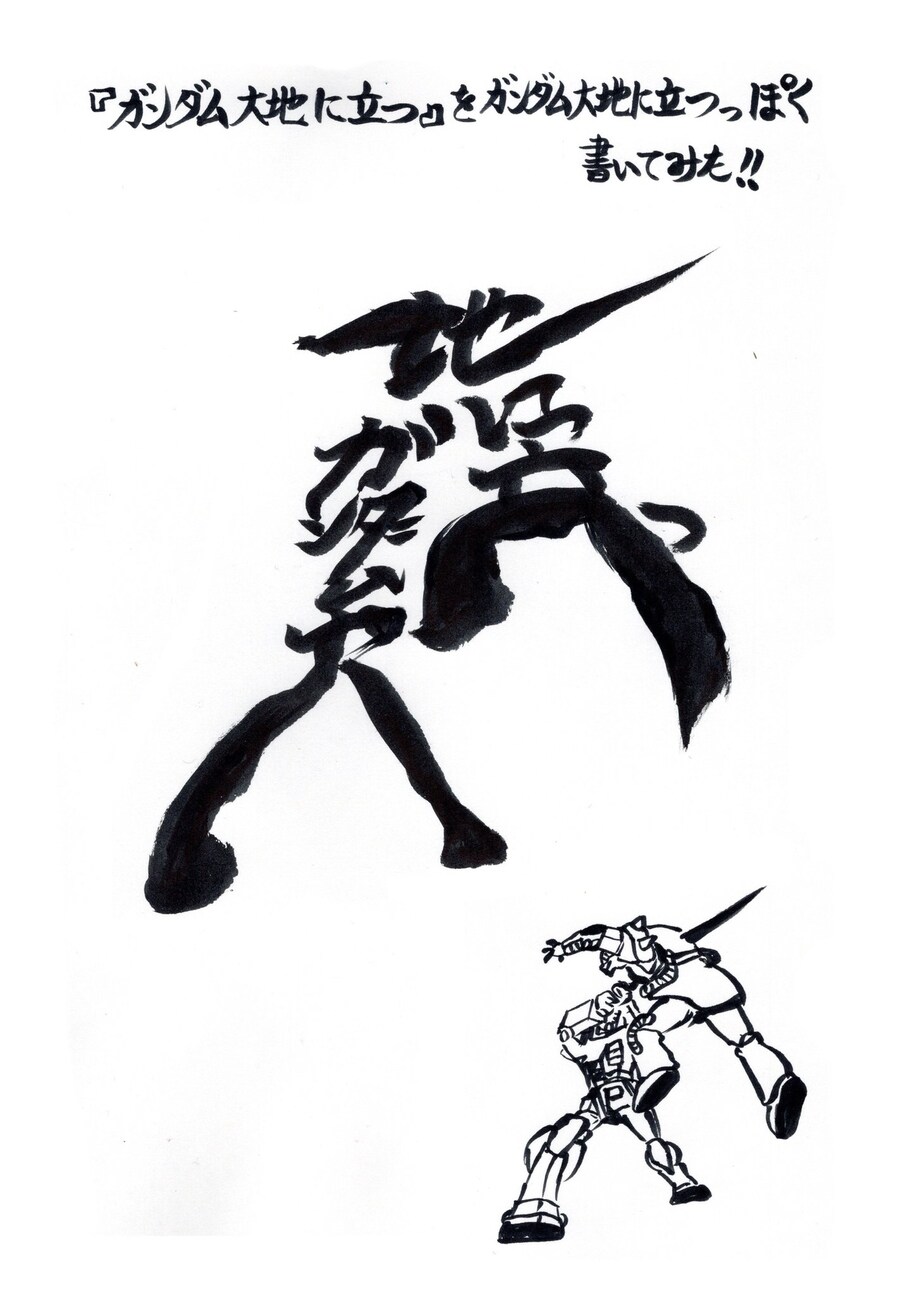 『ガンダム大地に立つ』をガンダム大地に立つっぽく
書いてみた!!
地
に
立つ
ガ
ン
ダ
ム
大